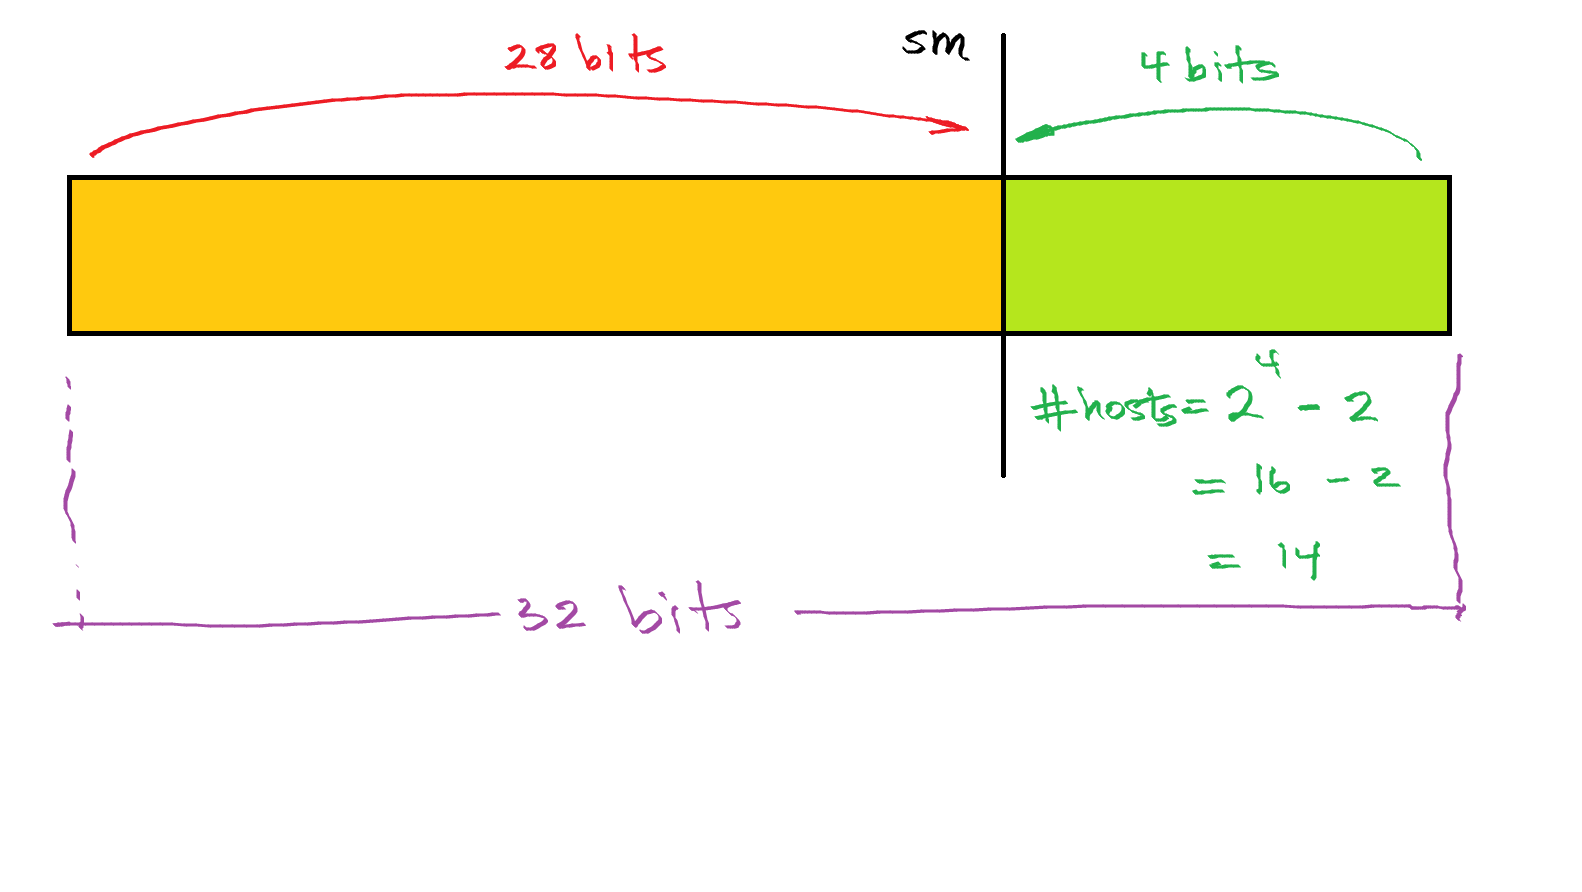 28 bits
sm
4 bits
#hosts = 2⁴ - 2
= 16 - 2
= 14
32 bits